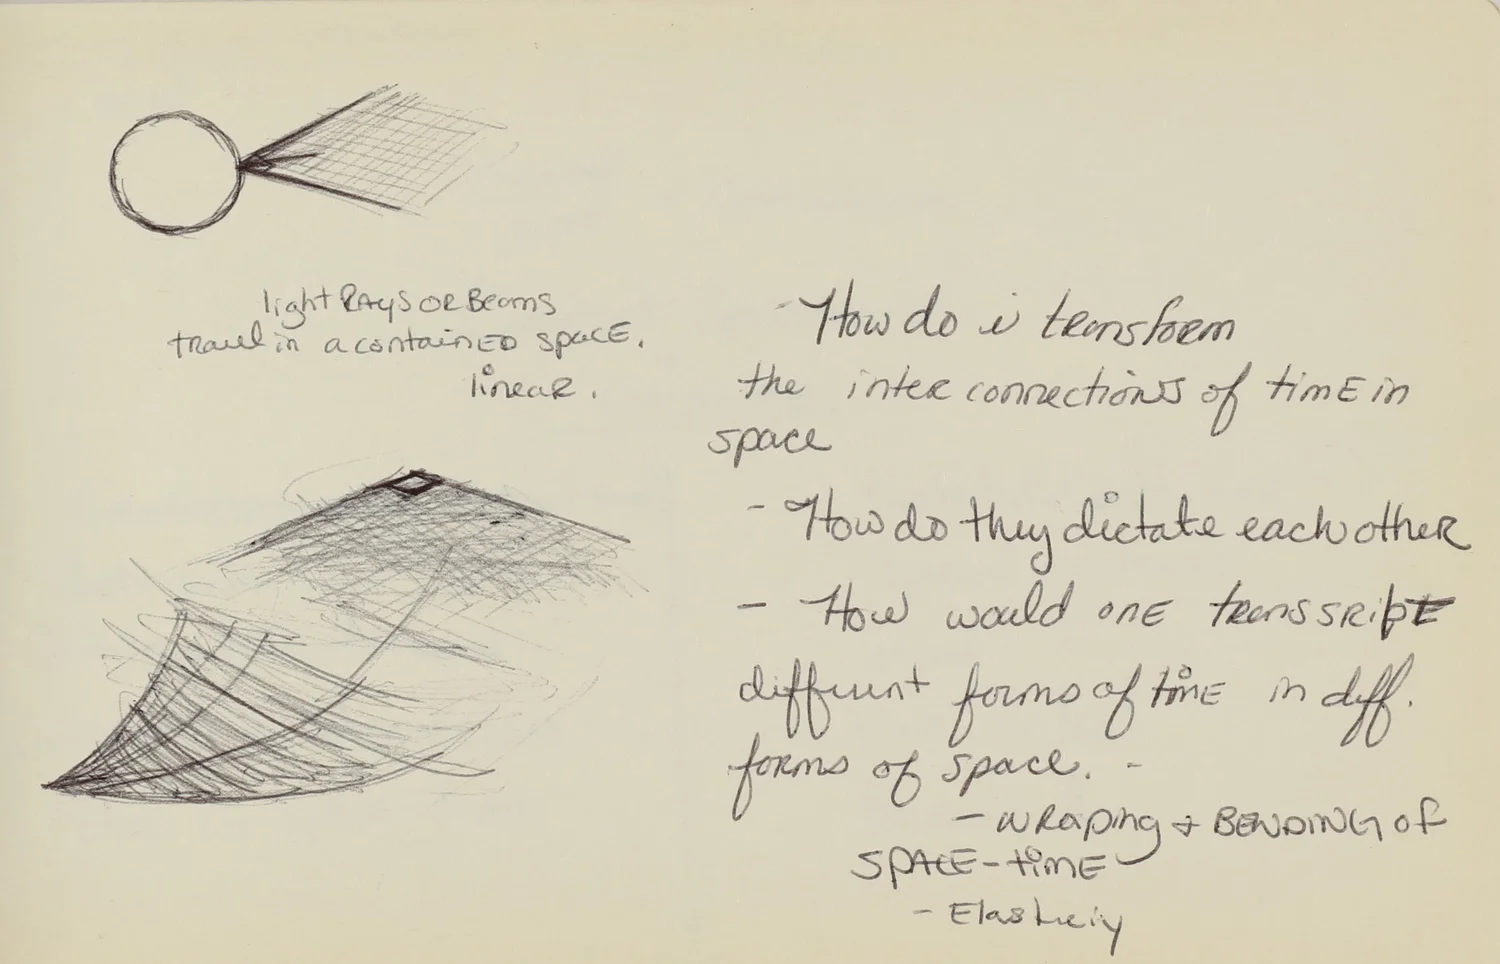 light RAYS OR Beams
travel in a contained space.
linear.
- How do i transform
the inter connections of time in
space
- How do they dictate each other
- How would one transsript
different forms of time in diff.
forms of space. -
- wraping + BENDING of
SPACE-time
- Elasticiy